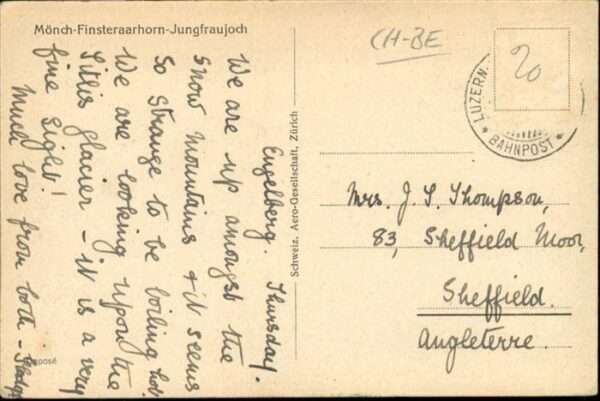 Mönch-Finsteraarhorn-Jungfraujoch
Engelberg. Thursday.
We are up amongst the
snow mountains & it seems
so strange to be boiling hot.
We are looking upon the
Titlis glacier - it is a very
fine sight!
Much love from both -
Schweiz. Aero-Gesellschaft, Zürich
CH-BE
20
LUZERN.
BAHNPOST
Mrs. J. S. Thompson,
83, Sheffield Moor,
Sheffield.
Angleterre.